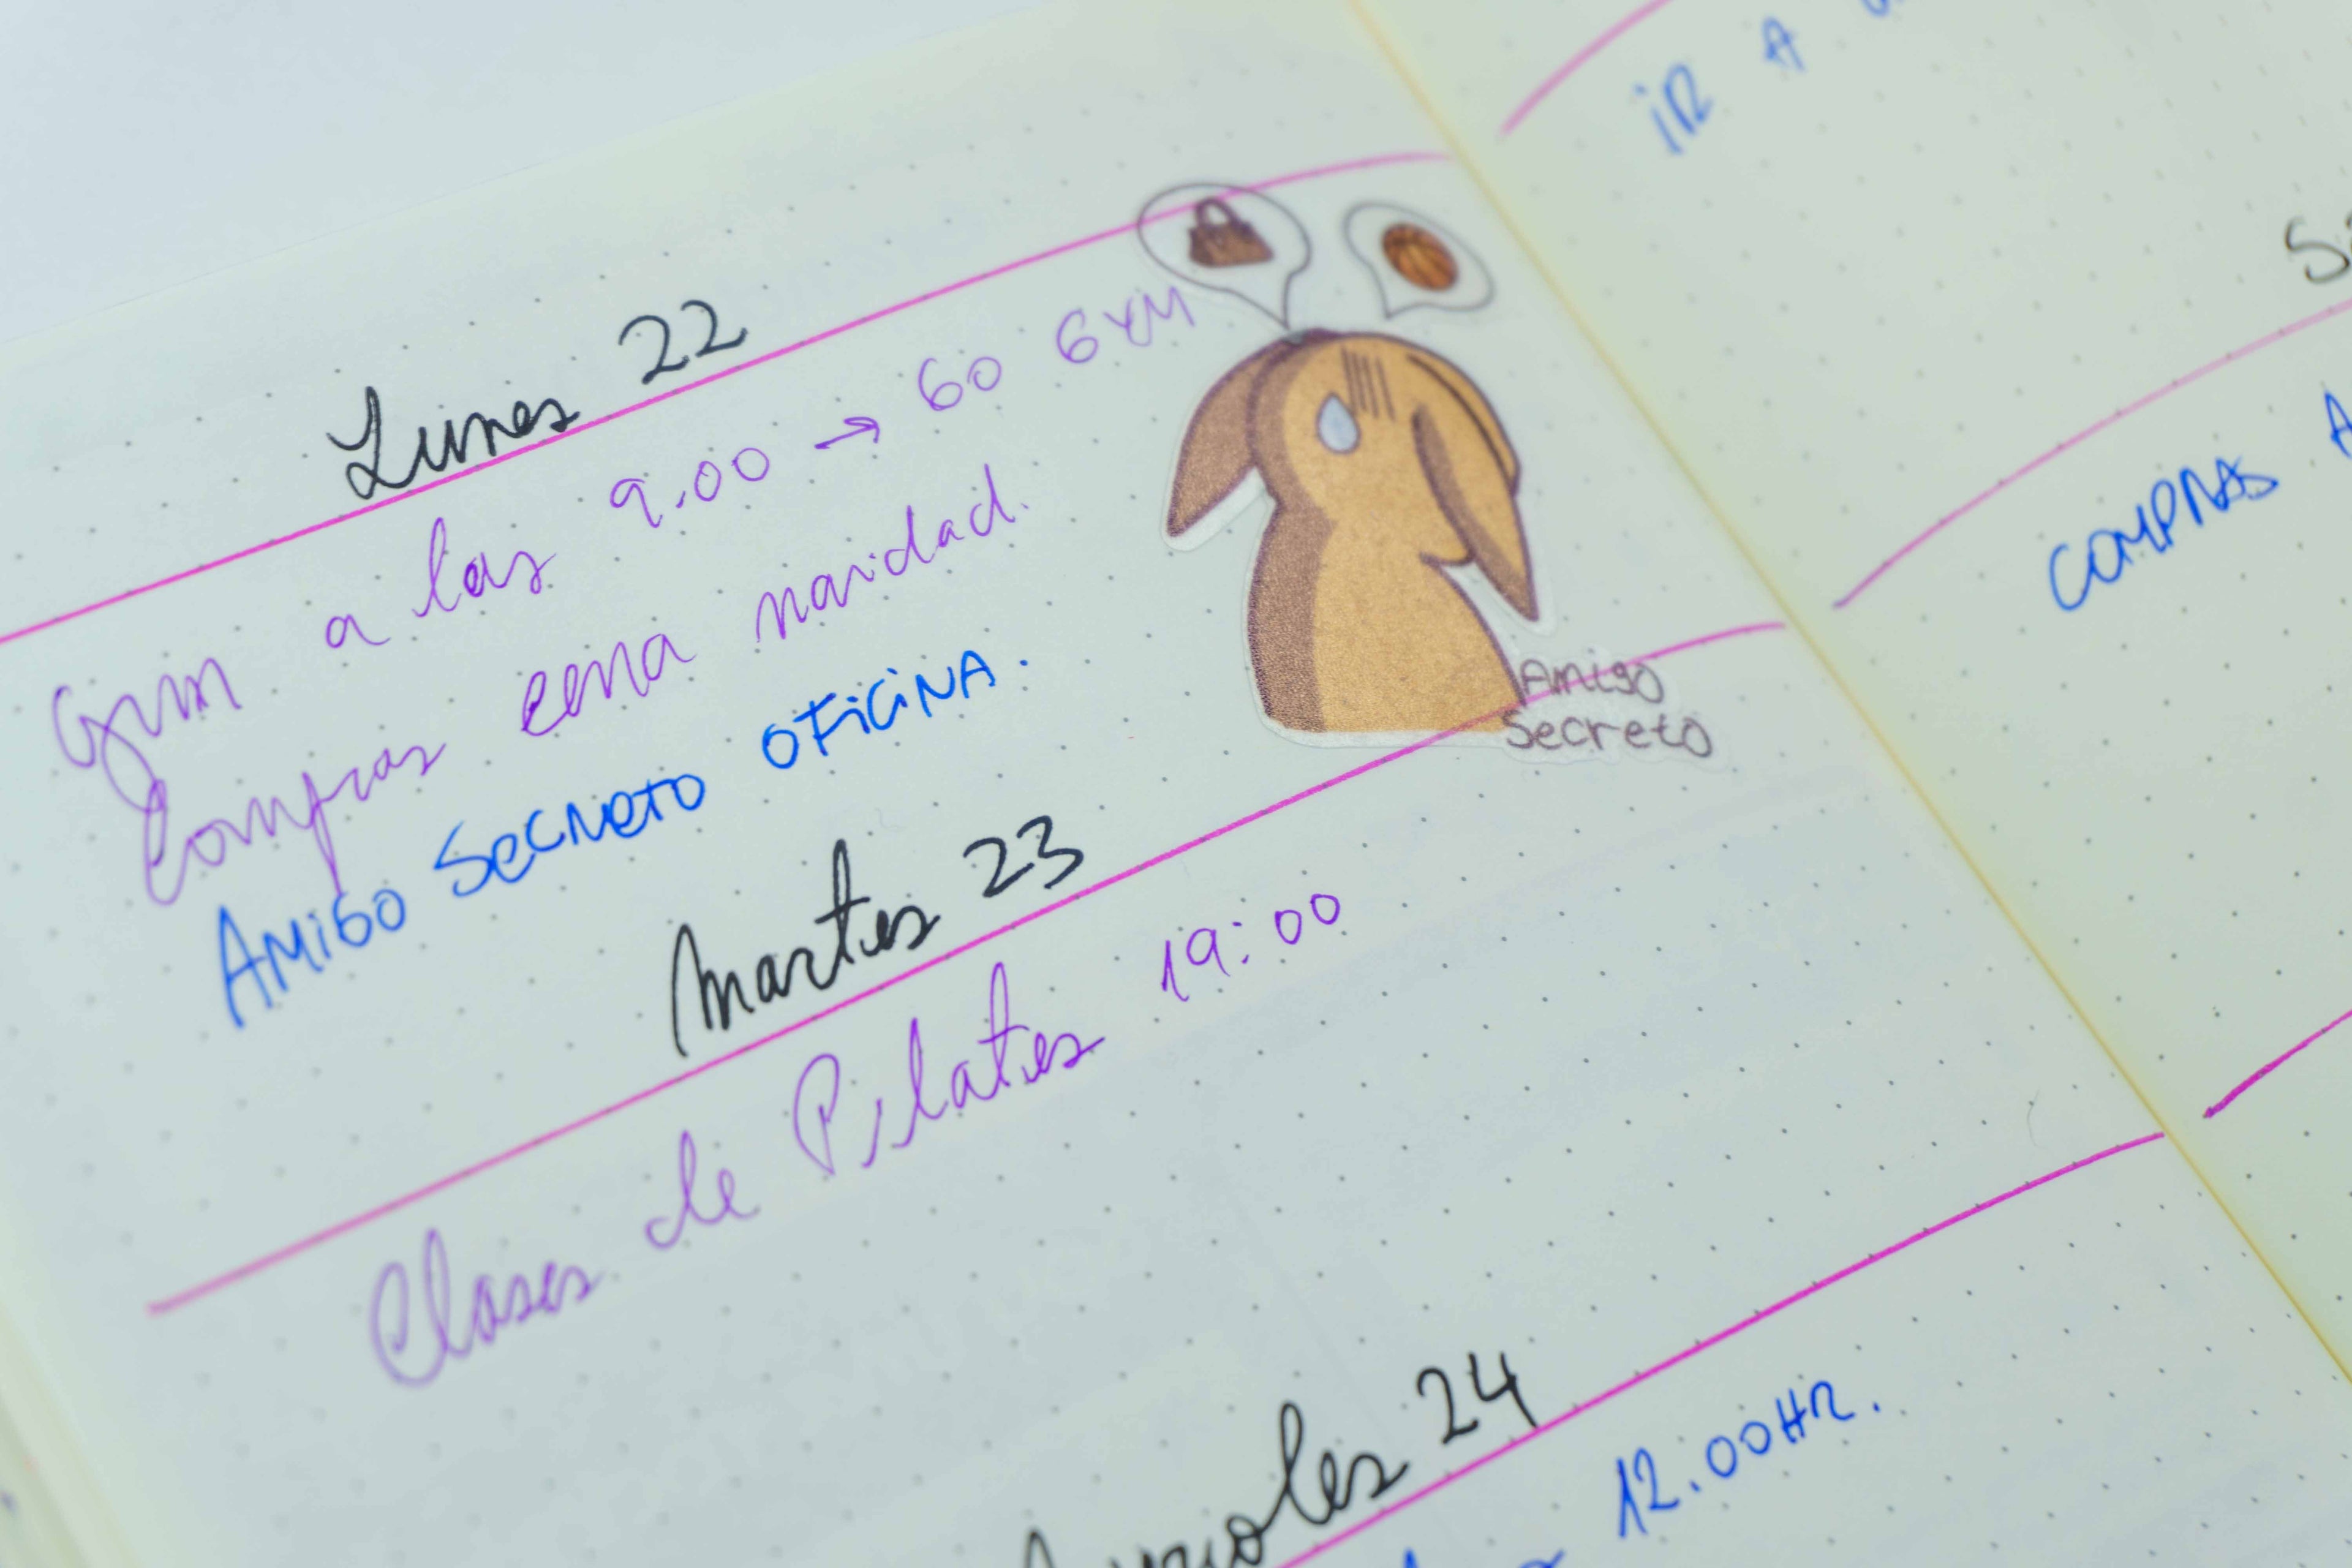 Lunes 22
Gym a las 9.00 → GO GYM
Compras cena navidad.
AMIGO SECRETO OFICINA.
Amigo
Secreto
Martes 23
Clases de Pilates 19:00
24
12.00HR.
IR A
COMPRAS